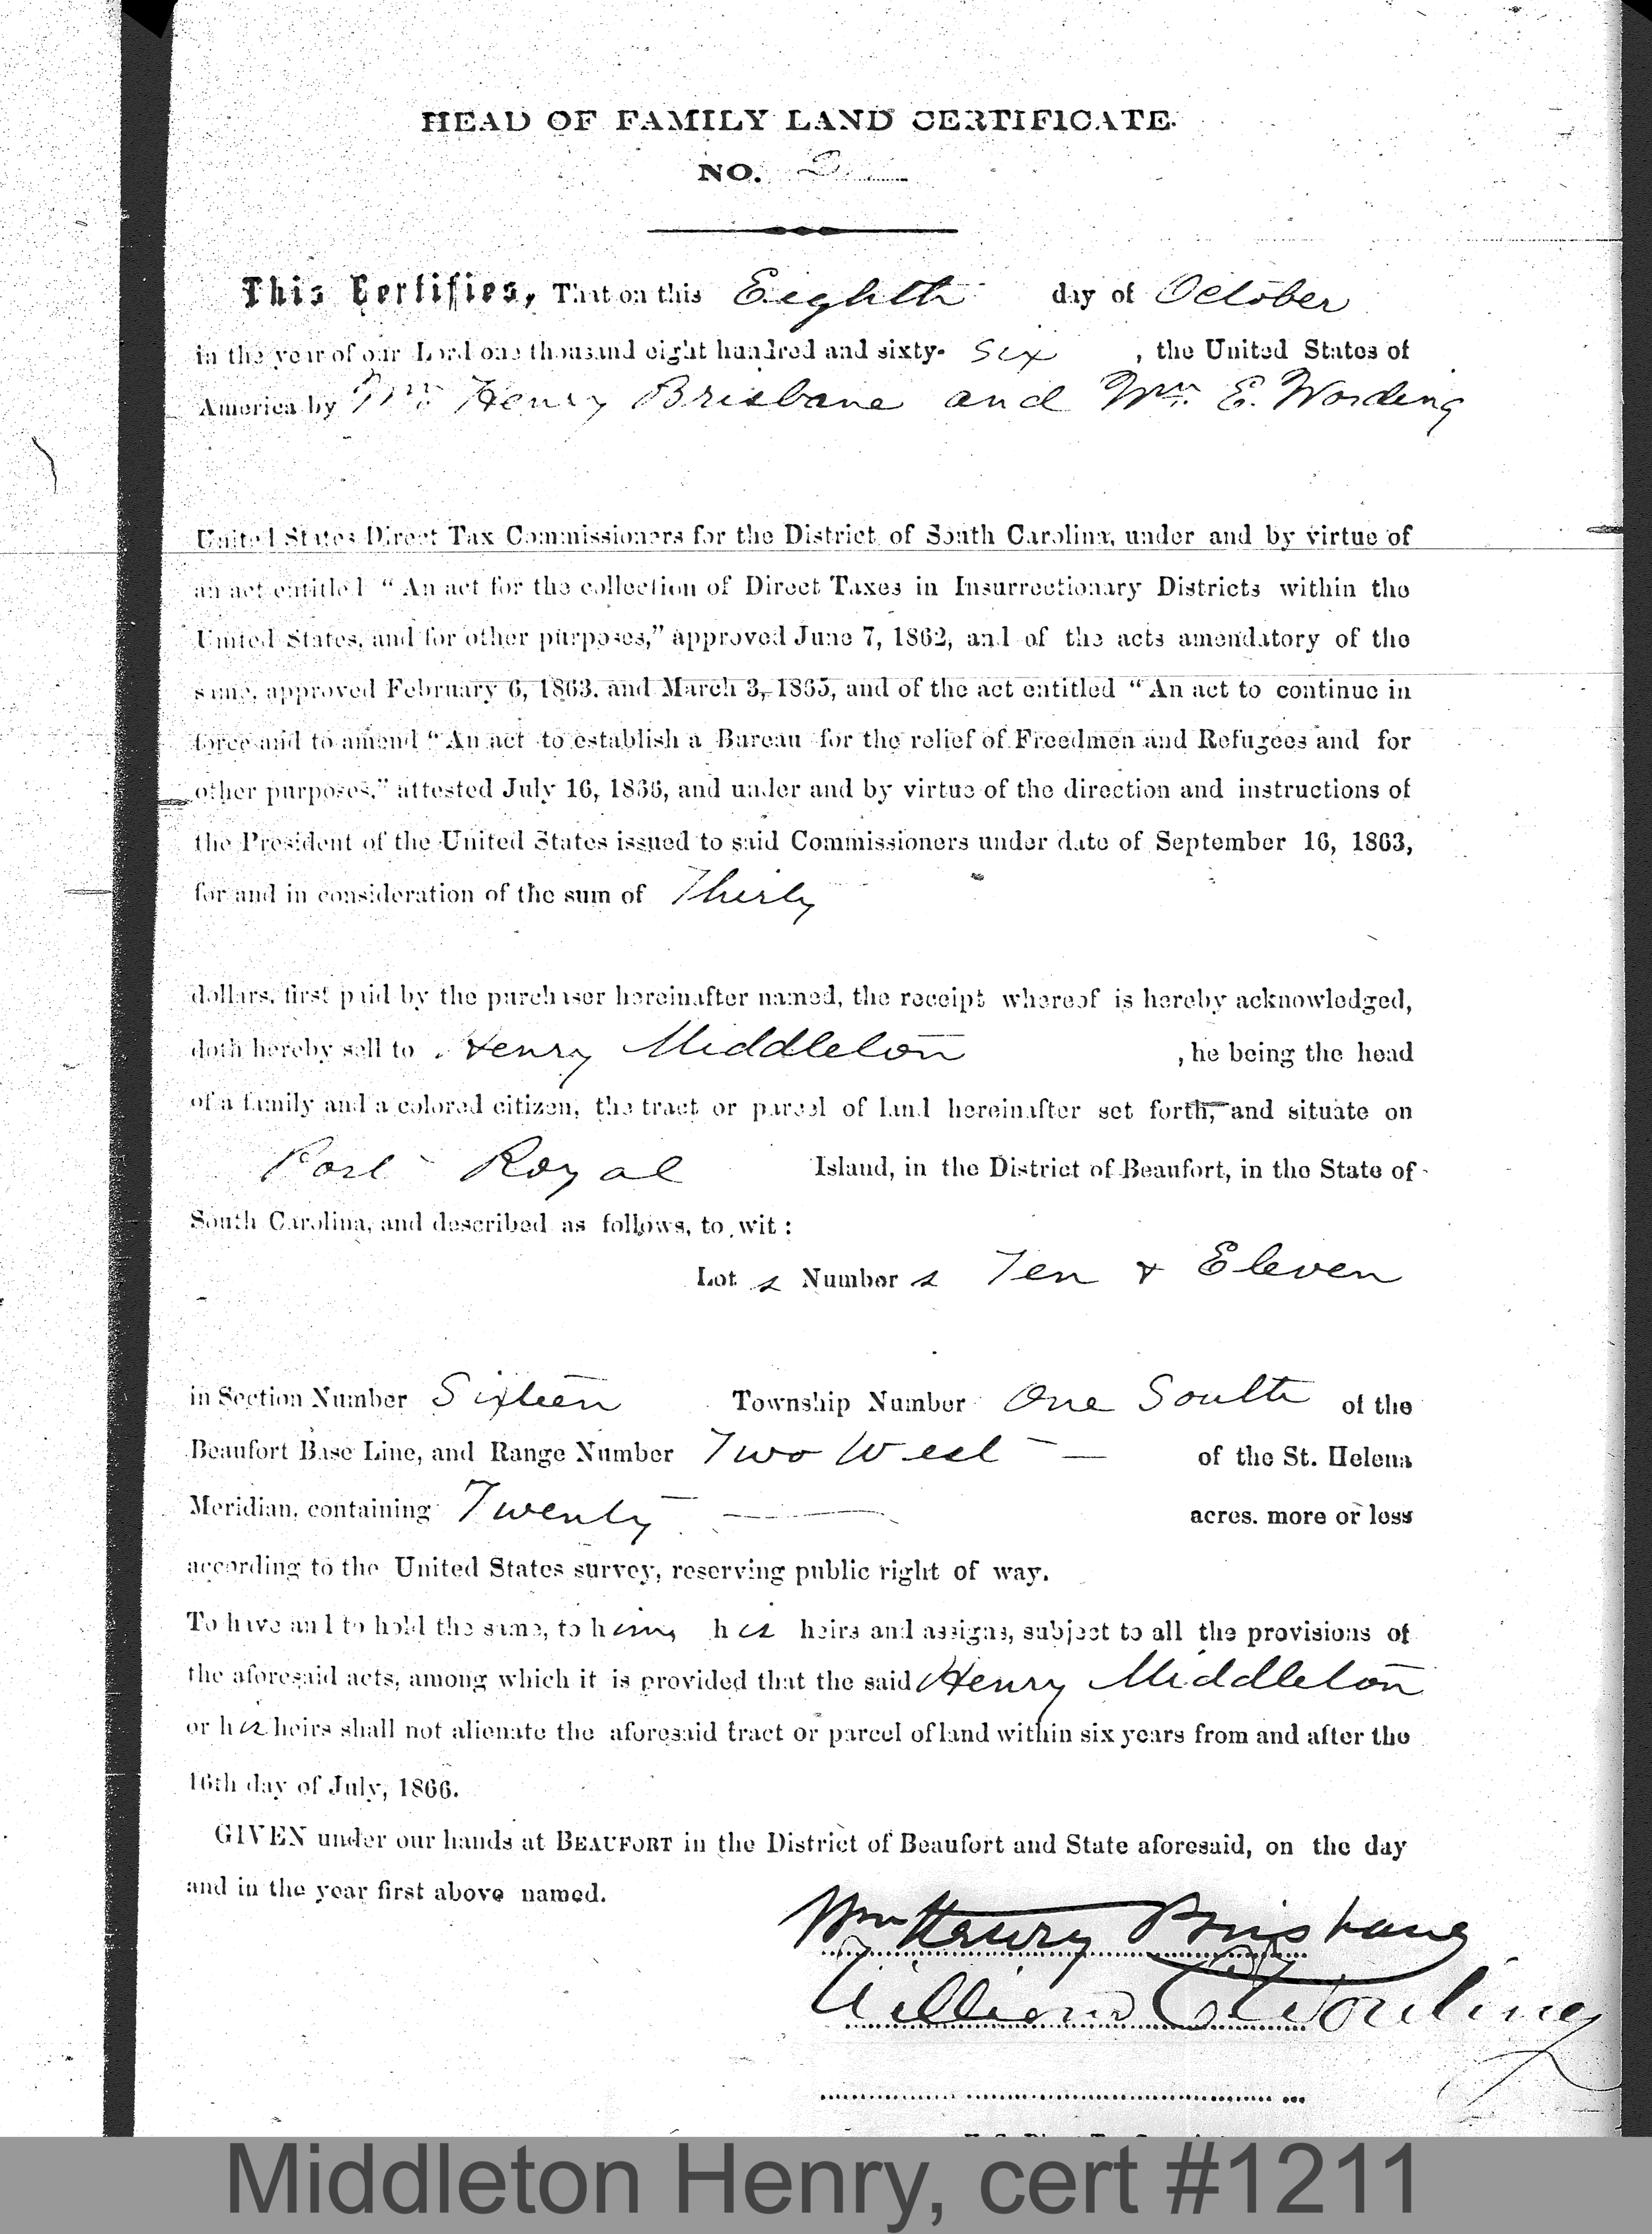 HEAD OF FAMILY LAND CERTIFICATE.
NO. 2
This Certifies, That on this Eighth day of October
in the year of our Lord one thousand eight hundred and sixty- six , the United States of
America by Wm. Henry Brisbane and Wm. E. Wording
United States Direct Tax Commissioners for the District of South Carolina, under and by virtue of
an act entitled "An act for the collection of Direct Taxes in Insurrectionary Districts within the
United States, and for other purposes," approved June 7, 1862, and of the acts amendatory of the
same, approved February 6, 1863. and March 3, 1865, and of the act entitled "An act to continue in
force and to amend "An act to establish a Bureau for the relief of Freedmen and Refugees and for
other purposes," attested July 16, 1866, and under and by virtue of the direction and instructions of
the President of the United States issued to said Commissioners under date of September 16, 1863,
for and in consideration of the sum of Thirty
dollars, first paid by the purchaser hereinafter named, the receipt whereof is hereby acknowledged,
doth hereby sell to Henry Middleton , he being the head
of a family and a colored citizen, the tract or parcel of land hereinafter set forth, and situate on
Port Royal Island, in the District of Beaufort, in the State of
South Carolina, and described as follows, to wit:
Lot s Number s Ten & Eleven
in Section Number Sixteen Township Number One South of the
Beaufort Base Line, and Range Number Two West — of the St. Helena
Meridian, containing Twenty — acres. more or less
according to the United States survey, reserving public right of way.
To have and to hold the same, to him, his heirs and assigns, subject to all the provisions of
the aforesaid acts, among which it is provided that the said Henry Middleton
or his heirs shall not alienate the aforesaid tract or parcel of land within six years from and after the
16th day of July, 1866.
GIVEN under our hands at BEAUFORT in the District of Beaufort and State aforesaid, on the day
and in the year first above named.
Wm Henry Brisbane
William E Wording
Middleton Henry, cert #1211